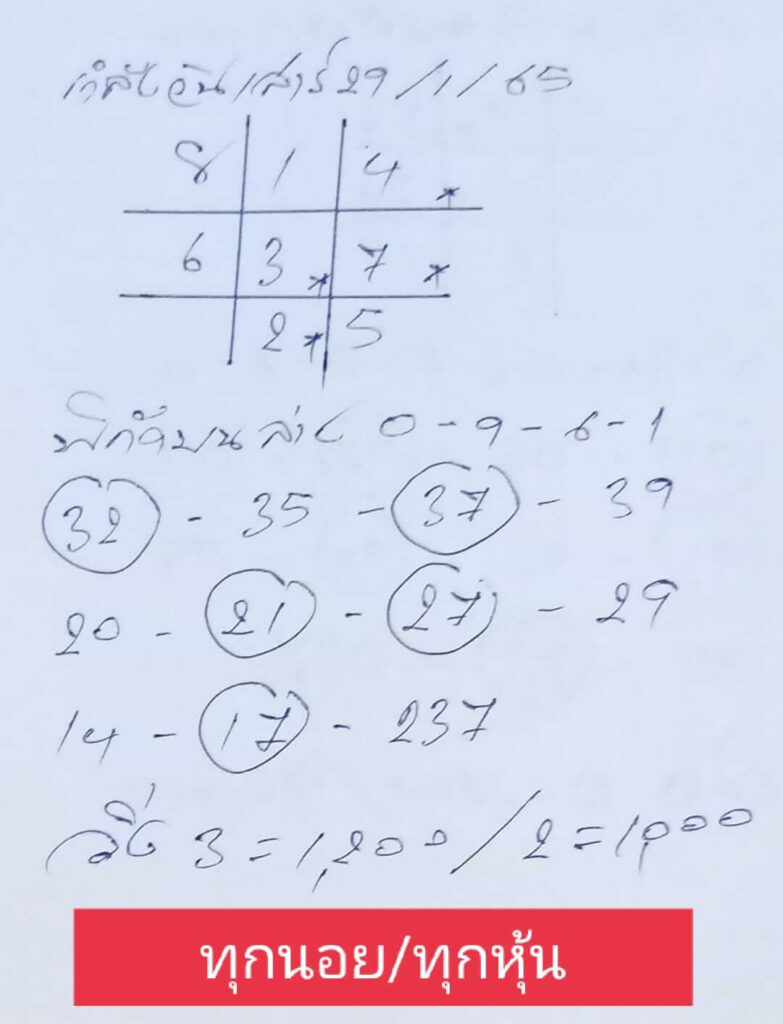 กำลังวันเสาร์ 29/1/65
8 1 4 *
6 3 * 7 *
2 * 5
พิกัดบนล่าง 0-9-6-1
32 - 35 - 37 - 39
20 - 21 - 27 - 29
14 - 17 - 237
วิ่ง 3=1,200/2=1,000
ทุกนอย/ทุกหุ้น